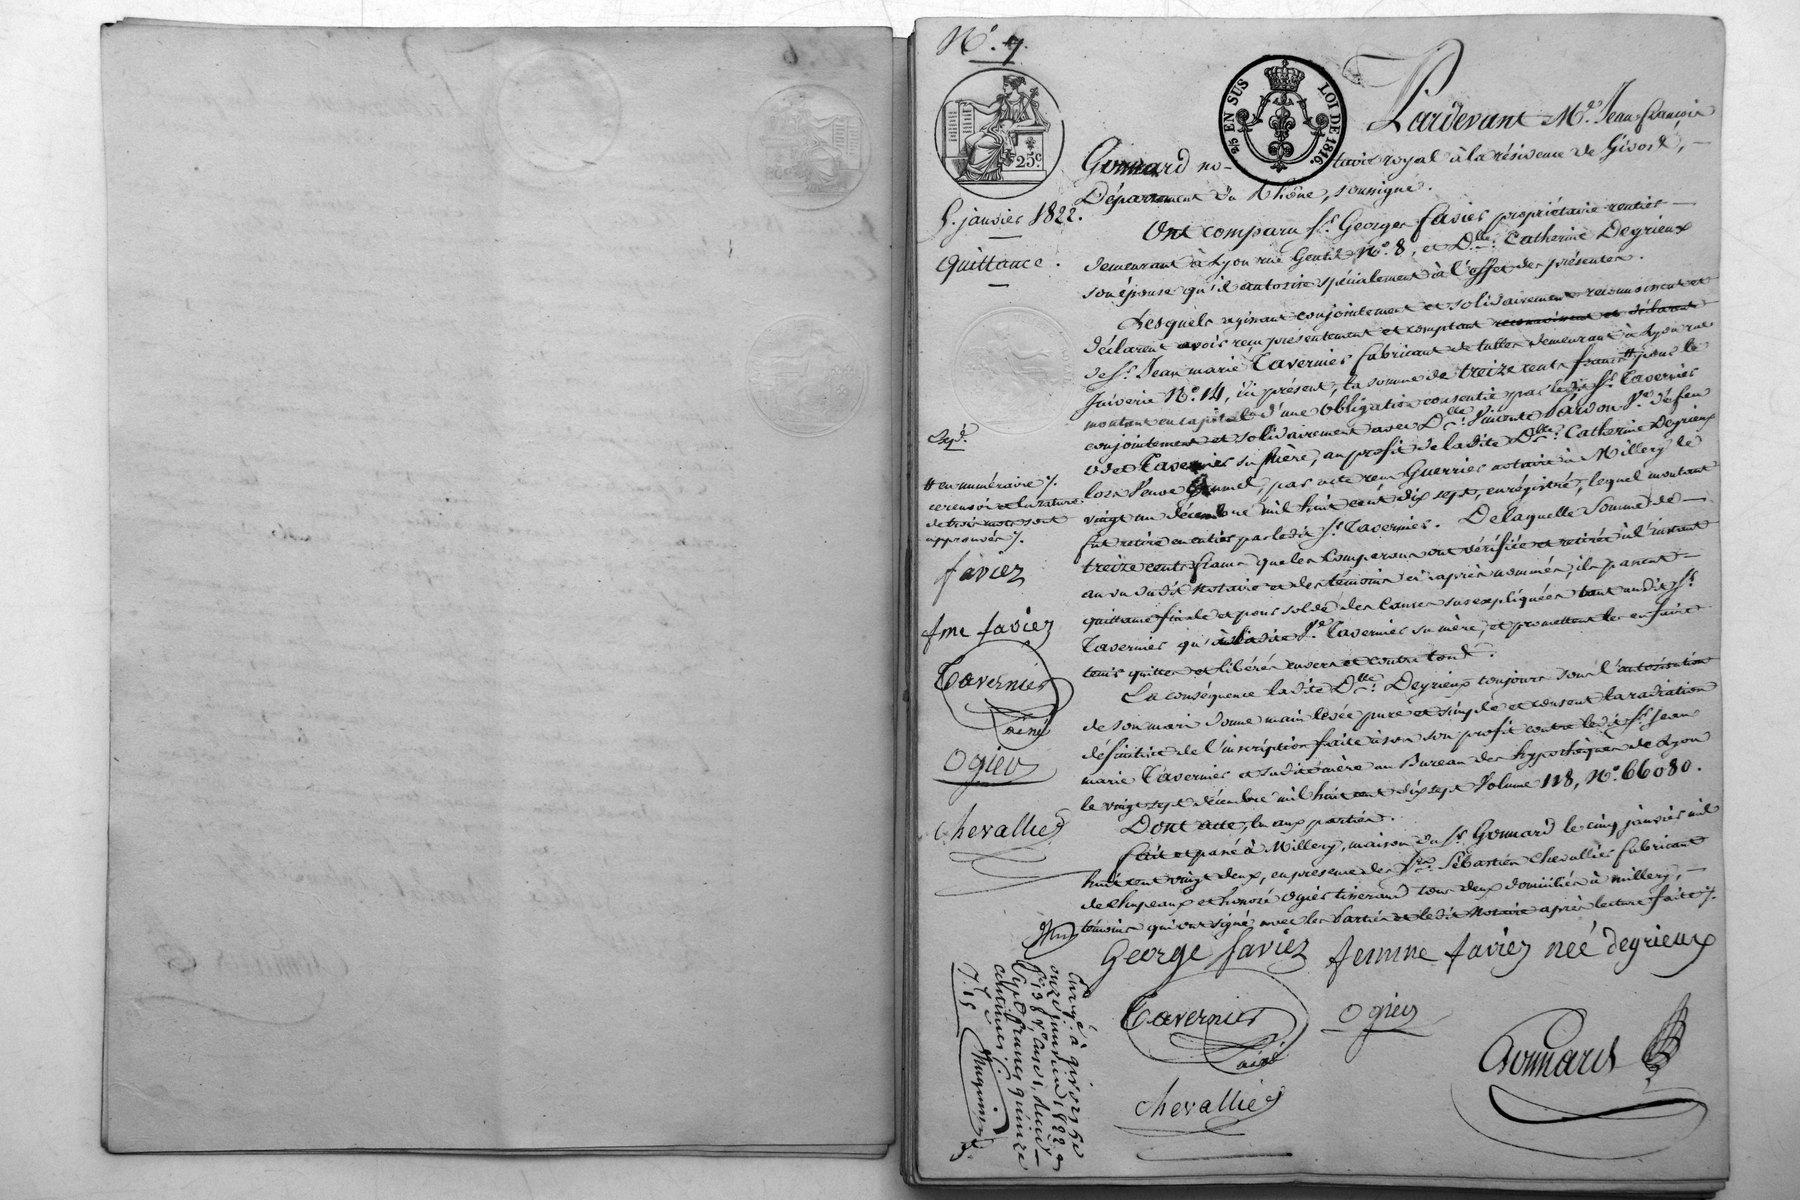 N.° 7.
25c
5/5 EN SUS LOI DE 1816.
5. janvier 1822.
Quittance.
Pardevant M.e Jean françois
Gonnard notaire royal à la résidence de Givors,
Département du Rhône, soussigné.
Ont comparu s.r Georges favier propriétaire rentier
demeurant à Lyon rue Gentil N.° 8, et D.lle Catherine Degrieux
son épouse qu'il autorise spécialement à l'effet des présentes.
Lesquels agissant conjointement et solidairement reconnoissent et
déclarent avoir reçu présentement et comptant reconnoissent et déclarent
de s.r Jean marie Tavernier fabricant de tulles demeurant à Lyon rue
Juiverie N.° 14, ici présent, la somme de treize cents francs # pour le
montant en capital d'une obligation consentie par ledit s.r Tavernier
conjointement et solidairement avec D.lle Pardon V.e de feu
Tavernier sa mère, au profit de ladite D.lle Catherine Degrieux
lors veuve, par acte reçu Guerrier notaire à Millery le
vingt un décembre mil huit cent dix sept, enregistré, lequel montant
fut retiré en entier par ledit s.r Tavernier. De laquelle somme de
treize cents francs que les comparans ont vérifiée et retirée à l'instant
au vu dudit notaire et des témoins ci après nommés, ils passent
quittance finale et pour solde des causes sus expliquées tant audit s.r
Tavernier qu'à ladite V.e Tavernier sa mère, et promettent les en faire
tenir quittes et libérés envers et contre tous.
En conséquence ladite D.lle Degrieux toujours sous l'autorisation
de son mari donne main levée pure et simple et consent la radiation
définitive de l'inscription faite à son profit contre ledit s.r Jean
marie Tavernier et sadite mère au Bureau des hypothèques de Lyon
le vingt sept décembre mil huit cent dix sept Volume 118, N.° 66080.
Dont acte, lu aux parties.
fait et passé à Millery, maison du s.r Gonnard le cinq janvier mil
huit cent vingt deux, en présence des s.rs Sébastien Chevallier fabricant
de chapeaux et honoré Ogier tisserand tous deux domiciliés à millery,
témoins qui ont signé avec les parties et ledit notaire après lecture faite /.
Expé.
# en numéraire /.
ce renvoi et la rature
de trois mots sont
approuvés /.
faviez
fme faviez
Tavernier
ainé
Ogier
Chevallier
George faviez
femme faviez neé degrieux
Tavernier
ainé
Ogier
Gonnard
chevallier
Enreg.é à givors le
onze janvier 1822
f.° 138 v.°
sept francs quinze
centimes.
7. 15